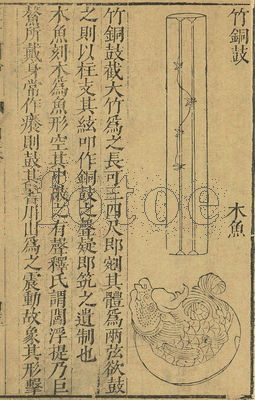 竹銅鼓
木魚
竹銅鼓截大竹爲之長可三四尺即剜其體爲兩弦欲鼓
之則以柱支其絃叩作銅鼓之聲疑即筑之遺制也
木魚刻木爲魚形空其中敲之有聲釋氏謂閻浮提乃巨
鰲所戴身當作癢則鼓其鬐川山爲之震動故象其形擊